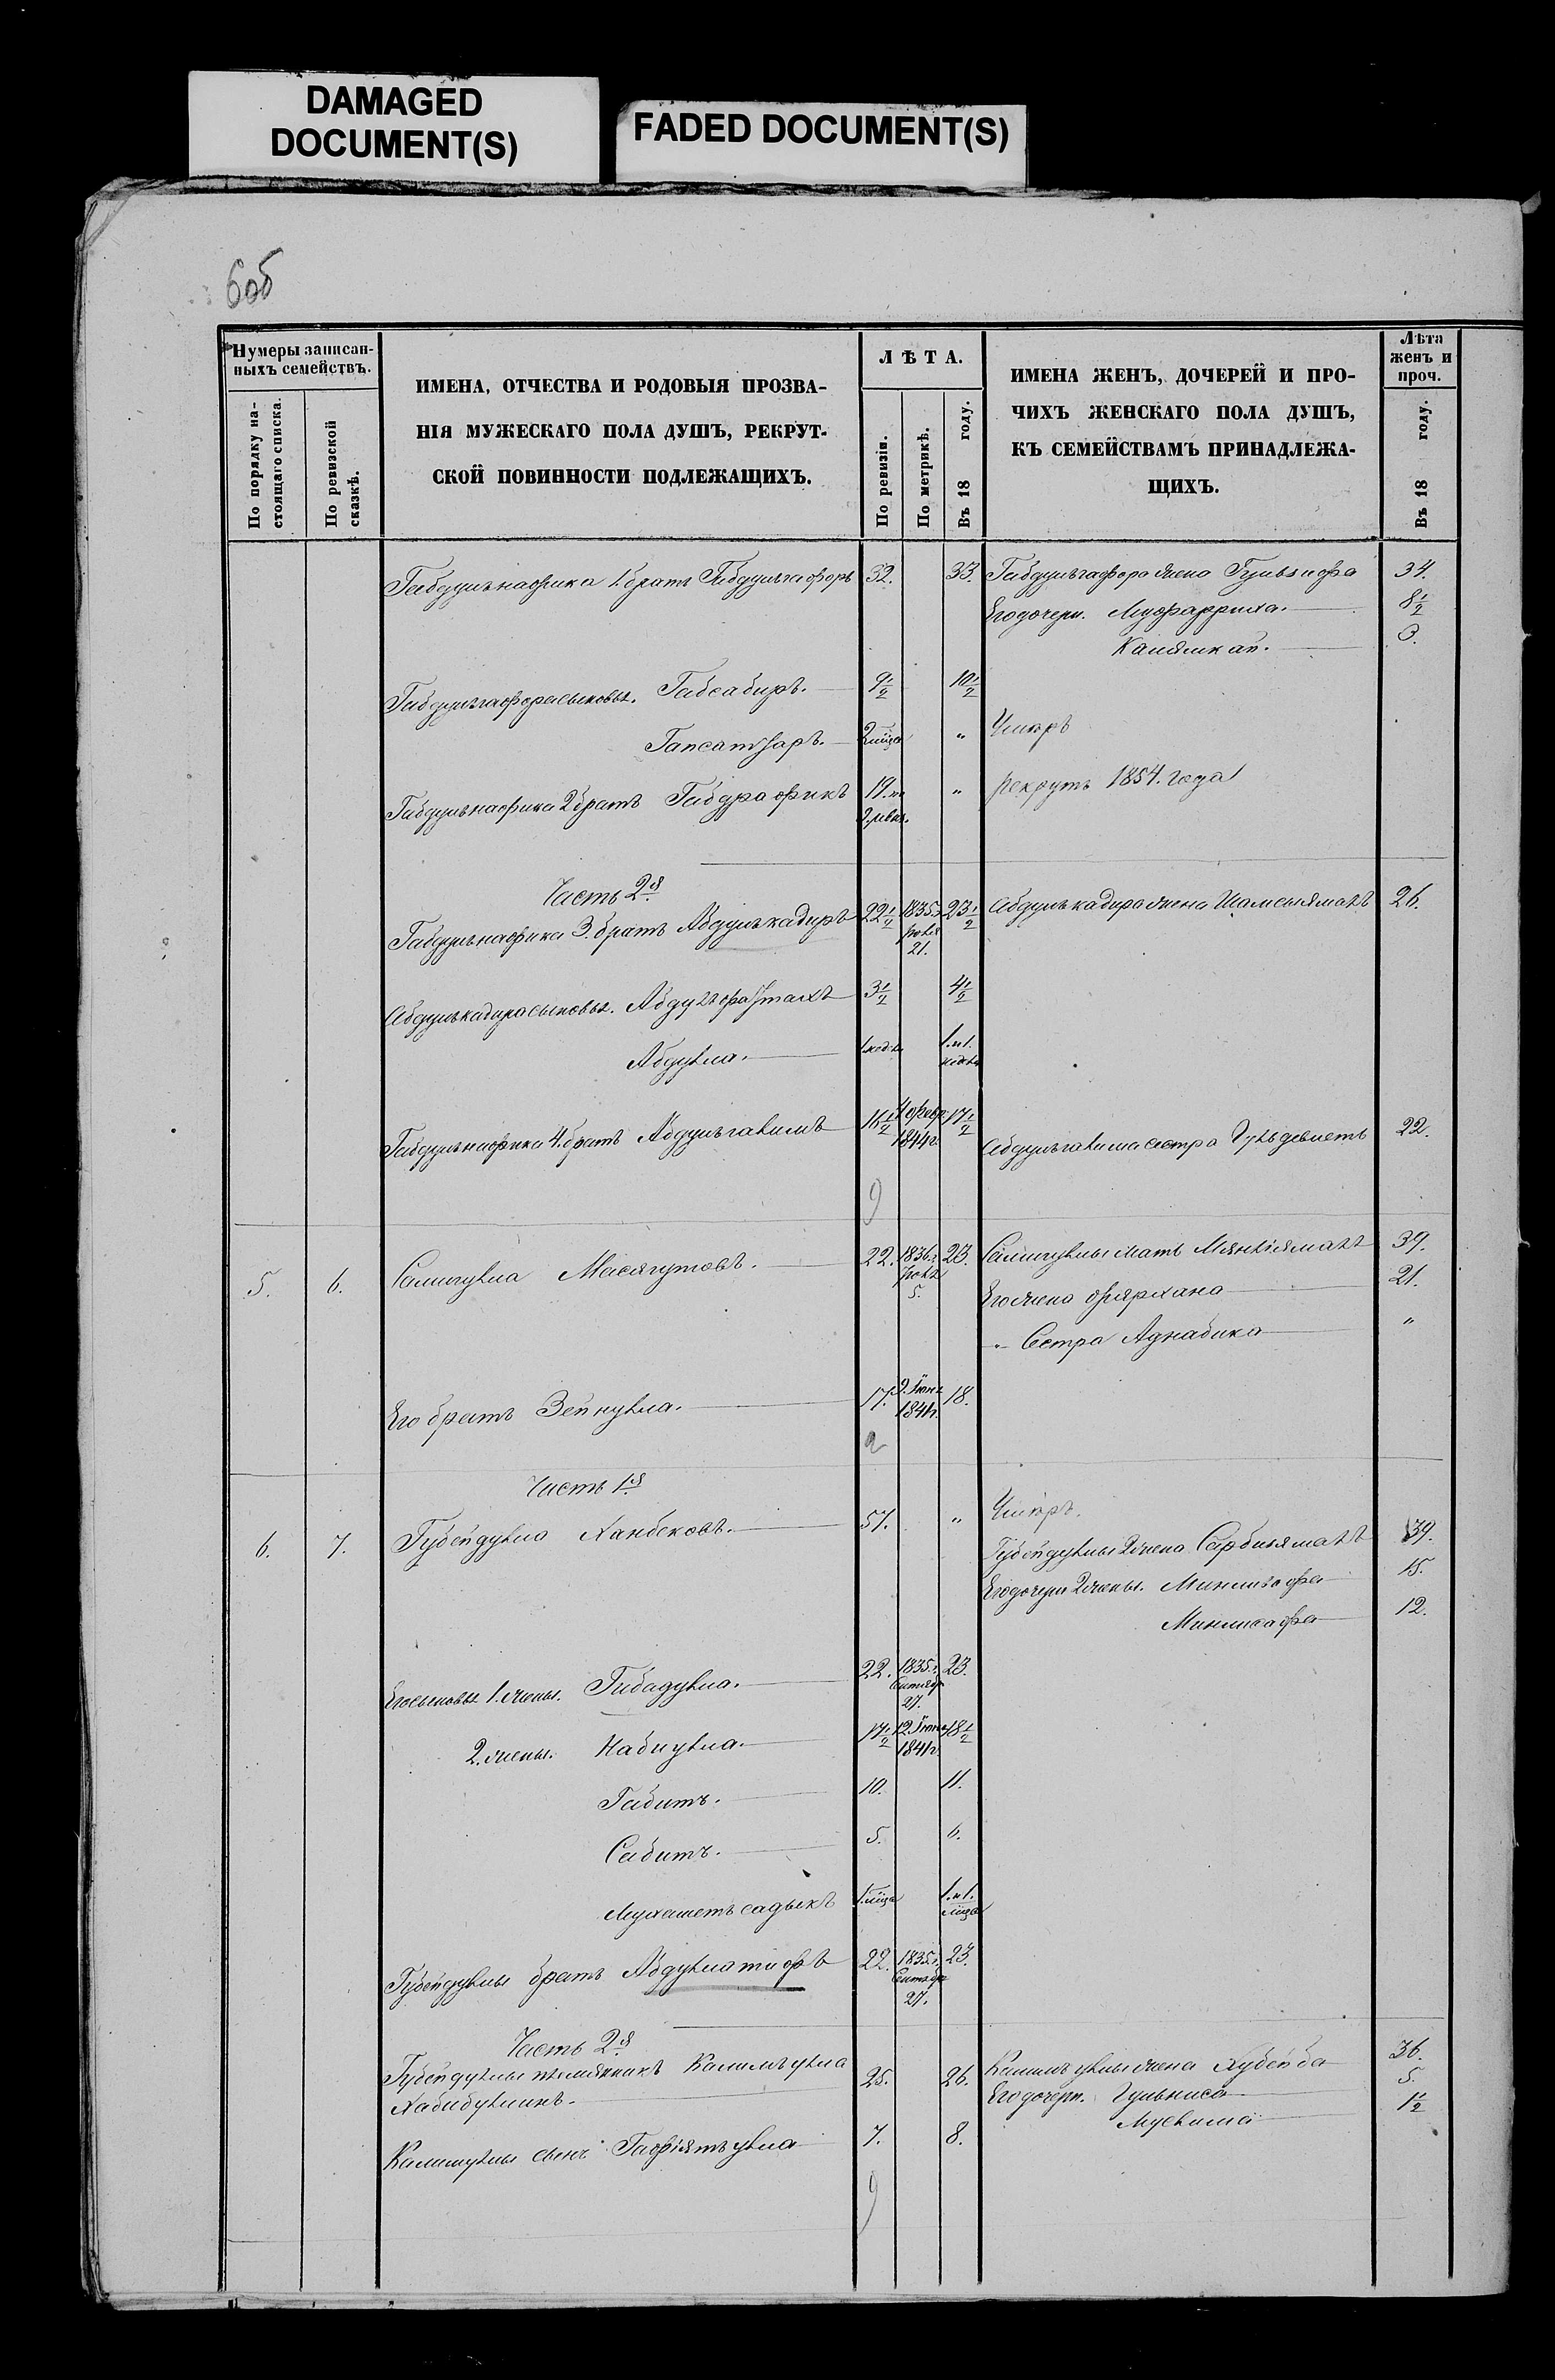 DAMAGED
DOCUMENT(S)
FADED DOCUMENT(S)
6об
Нумеры записан-
ныхъ семействъ.
По порядку на-
стоящаго списка.
По ревизской
сказкѣ.
ИМЕНА, ОТЧЕСТВА И РОДОВЫЯ ПРОЗВА-
НІЯ МУЖЕСКАГО ПОЛА ДУШЪ, РЕКРУТ-
СКОЙ ПОВИННОСТИ ПОДЛЕЖАЩИХЪ.
ЛѢТА.
По ревизіи.
По метрикѣ.
Въ 18 году.
ИМЕНА ЖЕНЪ, ДОЧЕРЕЙ И ПРО-
ЧИХЪ ЖЕНСКАГО ПОЛА ДУШЪ,
КЪ СЕМЕЙСТВАМЪ ПРИНАДЛЕЖА-
ЩИХЪ.
Лѣта
женъ и
проч.
Въ 18 году.
Габдулнафика 1. братъ Габдулгафоръ 32. 33. Габдулгафора жена Гульзифа 34.
Его дочери. Муфарриха. 8 1/2
Камямкаи. 3.
Габдулгафора сыновья. Габсабиръ. 9 1/2 10 1/2
Гапсаттаръ. 2 мѣца " Умеръ
Габдулнафика 2 братъ Габдрафикъ 19. " рекрутъ 1854. года
Часть 2я
Габдулнафика 3. братъ Абдулкадиръ 22 1/2 1835. 21. 23 1/2 Абдулкадира жена Шамсиямалъ 26.
Абдулкадира сыновья. Абдулфаттахъ 3 1/2 4 1/2
Абдулла. 1.
Габдулнафика 4. братъ Абдулгалимъ 16 1/2 4 февр. 1844г. 17 1/2
Абдулгалима сестра Гульдевлетъ 22.
9
5. 6. Салигулла Масягутовъ. 22. 1836. 5. 23. Салигуллы мать Мянліямалъ 39.
Его жена Фярхана 21.
" Сестра Аднабика "
Его братъ Зейнулла. 17. 9. Іюня 1841г. 18.
2
Часть 1я
6. 7. Губейдулла Ханбековъ. 57. " Умеръ.
Губейдуллы 2 жена Сарбиямалъ 39.
Его дочери 2 жены. Минлигафа 15.
Минлисафа 12.
Его сыновья 1. жены. Гибадулла. 22. 1835. Сентябр. 27. 23.
2. жены. Набиулла. 17 1/2 12. Іюня 1841г. 18 1/2
Габитъ. 10. 11.
Сабитъ. 5. 6.
Мухаметъ садыкъ 1. мѣца 1. и 1. мѣца
Губейдуллы братъ Абдуллатифъ 22. 1835. Сентября 27. 23.
Часть 2я
Губейдуллы племянникъ Калимъулла
Хабибуллинъ. 25. 26. Калимъуллы жена Хубейба 36.
Его дочери. Гульниса 5.
Муслима 1 1/2
Калимуллы сынъ Гафіятъулла 7. 8.
9